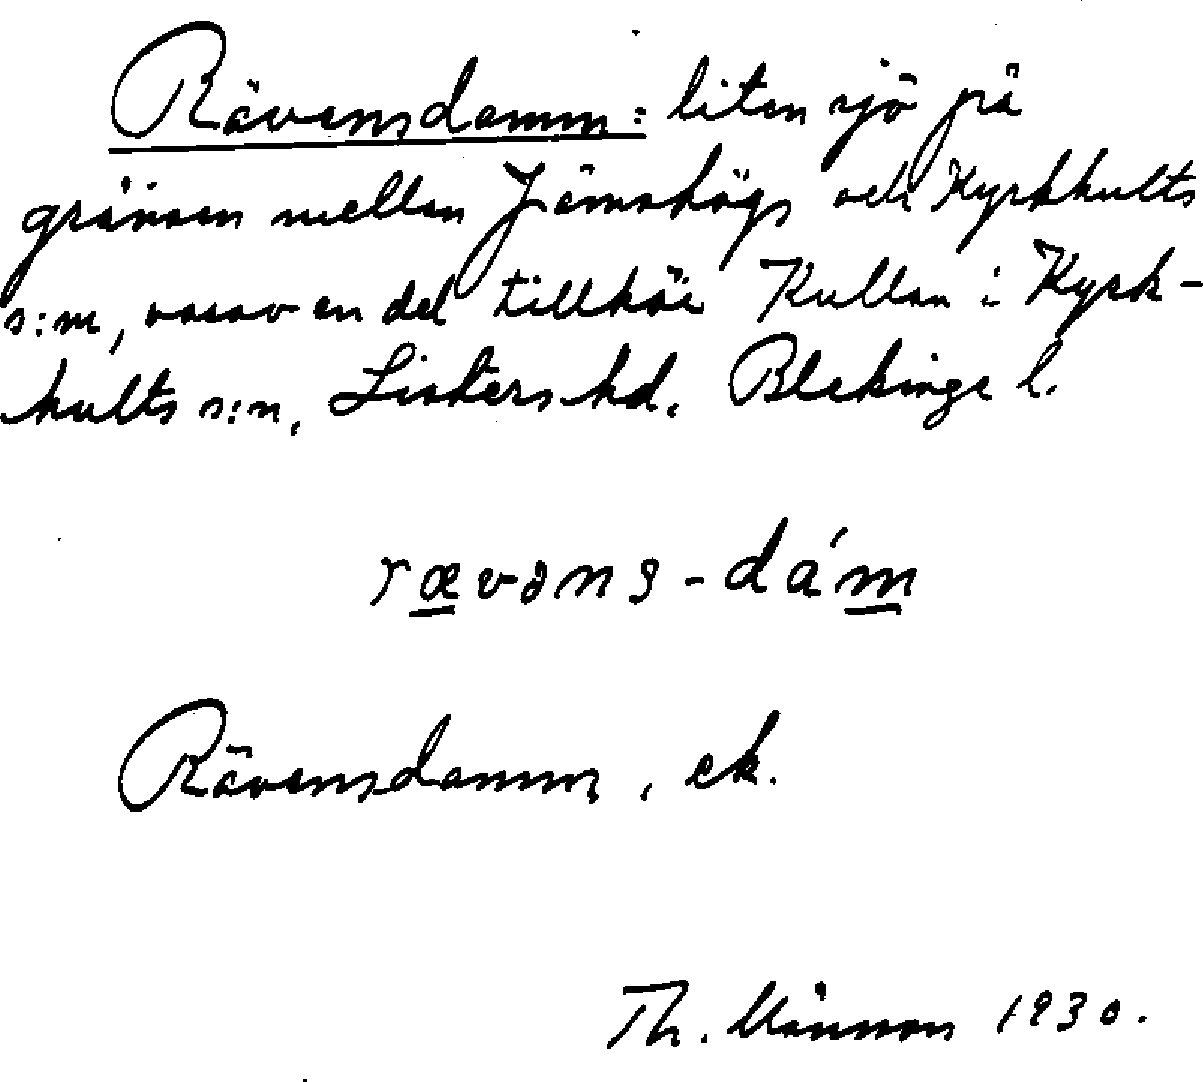 Rävensdamm: liten sjö på
gränsen mellan Jämshögs och Kyrkhults
s:n, varav en del tillhör Kullan i Kyrk-
hults s:n, Listers hd. Blekinge l.
rævəns-dám
Rävensdamm, ek.
Th. Månsson 1930.